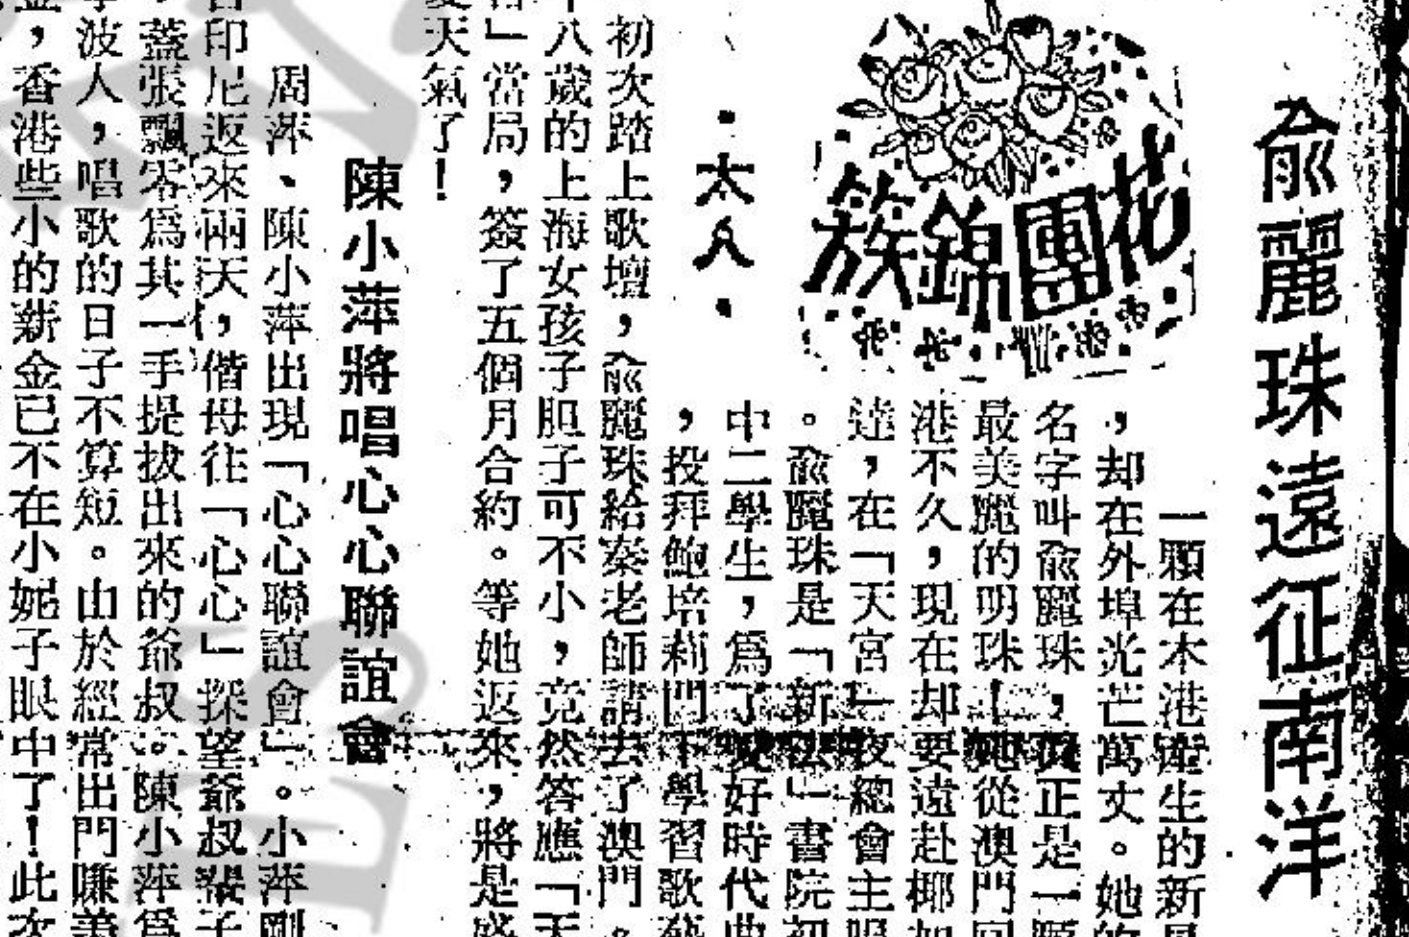 俞麗珠遠征南洋
花團錦簇
·太久·
一顆在本港產生的新
，却在外埠光芒萬丈。她的
名字叫俞麗珠，真正是一顆
最美麗的明珠！她從澳門回
港不久，現在却要遠赴椰加
達，在「天宮」夜總會主唱
。俞麗珠是「新法」書院初
中二學生，爲了愛好時代曲
，投拜鮑培莉門下學習歌藝
初次踏上歌壇，俞麗珠給秦老師請去了澳門。
八歲的上海女孩子胆子可不小，竟然答應「天
」當局，簽了五個月合約。等她返來，將是盛
夏天氣了！
陳小萍將唱心心聯誼會
周萍、陳小萍出現「心心聯誼會」。小萍剛
印尼返來兩天，偕母往「心心」探望爺叔輩子
，蓋張飄零爲其一手提拔出來的爺叔。陳小萍爲
波人，唱歌的日子不算短。由於經常出門賺美
，香港些小的薪金已不在小妮子眼中了！此次